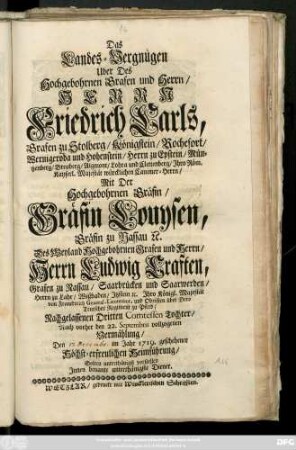 Das
Landes-Vergnügen
Uber Des
Hochgebohrnen Grafen und Herrn/
HERRN
Friedrich Carls,
Grafen zu Stolberg/ Königstein/ Rochefort/
Wernigeroda und Hohenstein/ Herrn zu Epstein/ Mün-
tzenberg/ Breuberg/ Aigmont/ Lohra und Clettenberg/ Ihro Röm.
Kayserl. Majestät würcklichen Cammer-Herrn/
Mit Der
Hochgebohrnen Gräfin/
Gräfin Louysen,
Gräfin zu Nassau &c.
Des Weyland Hochgebohrnen Grafen und Herrn/
Herrn Ludwig Craften,
Grafen zu Nassau/ Saarbrücken und Saarwerden/
Herrn zu Lahr/ Wißbaden/ Itzstein &c. Ihro Königl. Majestät
von Franckreich General-Lieutenant, und Obristen über Dero
Teutsches Regiment zu Pferd/
Nachgelassenen Dritten Comtessen Tochter/
Nach vorher den 22. Septembris vollzogenen
Vermählung/
Den 17. Novembr. im Jahr 1719. geschehener
Höchst-erfreulichen Heimführung/
Geben unterthänigst
Innen benante unterthänigste Diener.
WETZLAR, gedruckt mit Wincklerischen Schrifften.